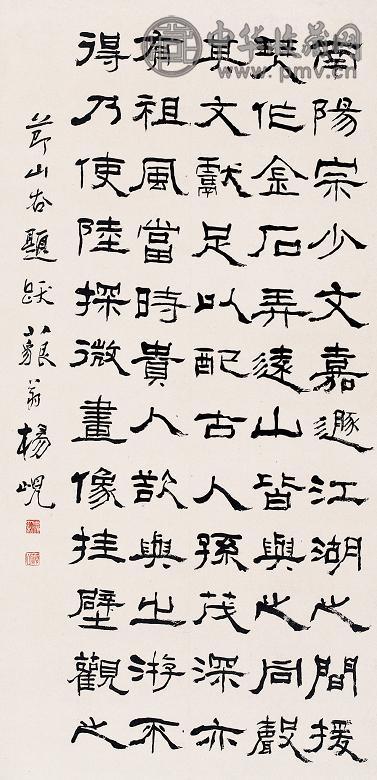 中华收藏网
www.pmv.cn
南陽宗少文嘉遯江湖之間援
琴作金石弄遠山皆與之同聲
其文獻足以配古人孫茂深亦
有祖風當時貴人欲與之游不
得乃使陸探微畫像挂壁觀之
節山谷題跋藐翁楊峴